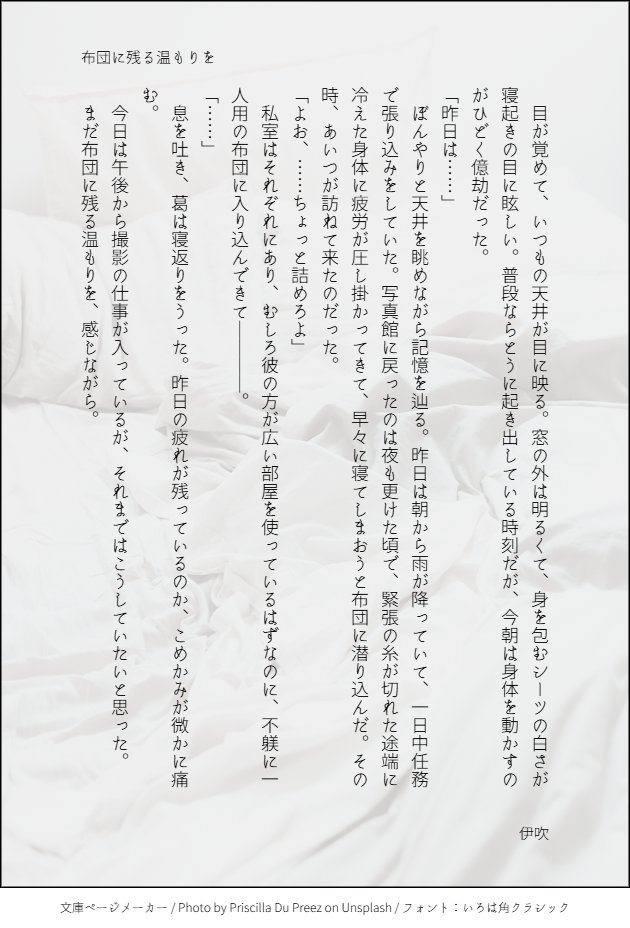 布団に残る温もりを
　目が覚めて、いつもの天井が目に映る。窓の外は明るくて、身を包むシーツの白さが
寝起きの目に眩しい。普段ならとうに起き出している時刻だが、今朝は身体を動かすの
がひどく億劫だった。
「昨日は……」
　ぼんやりと天井を眺めながら記憶を辿る。昨日は朝から雨が降っていて、一日中任務
で張り込みをしていた。写真館に戻ったのは夜も更けた頃で、緊張の糸が切れた途端に
冷えた身体に疲労が圧し掛かってきて、早々に寝てしまおうと布団に潜り込んだ。その
時、あいつが訪ねて来たのだった。
「よお、……ちょっと詰めろよ」
　私室はそれぞれにあり、むしろ彼の方が広い部屋を使っているはずなのに、不躾に一
人用の布団に入り込んできて――――。
「……」
　息を吐き、葛は寝返りをうった。昨日の疲れが残っているのか、こめかみが微かに痛
む。
　今日は午後から撮影の仕事が入っているが、それまではこうしていたいと思った。
　まだ布団に残る温もりを、感じながら。
伊吹
文庫ページメーカー / Photo by Priscilla Du Preez on Unsplash / フォント：いろは角クラシック